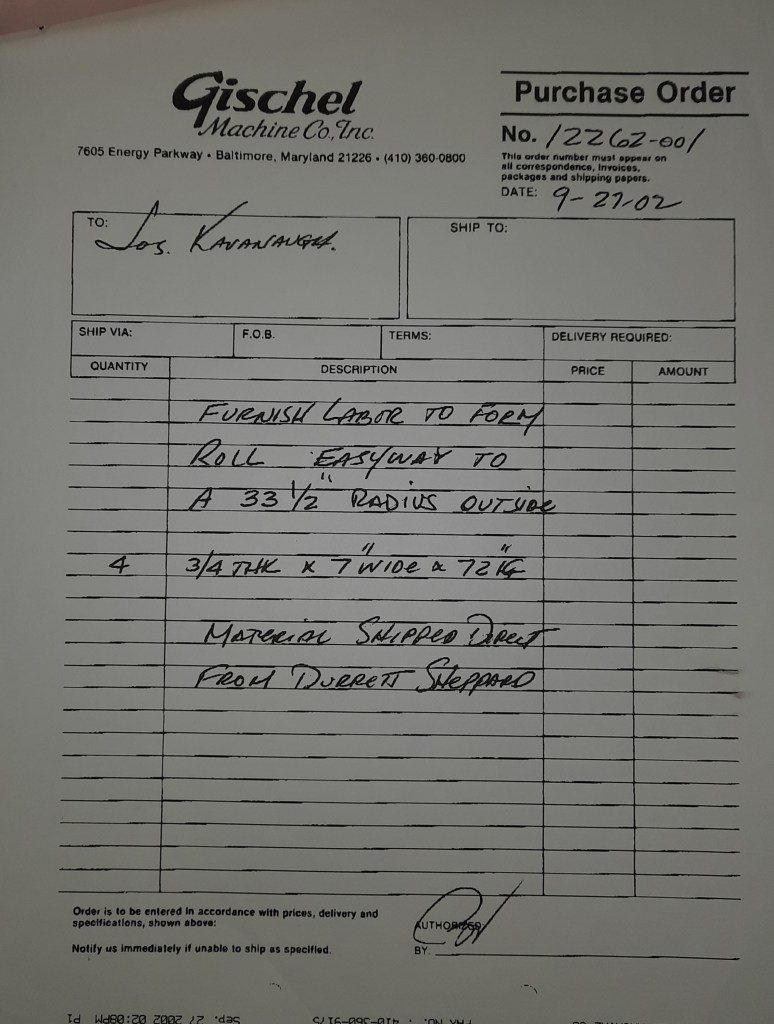 Gischel
Machine Co., Inc.
7605 Energy Parkway • Baltimore, Maryland 21226 • (410) 360-0800
Purchase Order
No. 12262-001
This order number must appear on
all correspondence, invoices,
packages and shipping papers.
DATE: 9-27-02
TO: Jos. KAVANAUGH.
SHIP TO:
SHIP VIA: F.O.B. TERMS: DELIVERY REQUIRED:
QUANTITY DESCRIPTION PRICE AMOUNT
FURNISH LABOR TO FORM
ROLL EASYWAY TO
A 33 1/2" RADIUS OUTSIDE
4 3/4 THK x 7" WIDE x 72" LG
MATERIAL SHIPPED DIRECT
FROM DURRETT SHEPPARD
Order is to be entered in accordance with prices, delivery and
specifications, shown above:
Notify us immediately if unable to ship as specified.
AUTHORIZED
BY:
P1 Sep. 27 2002 02:08PM